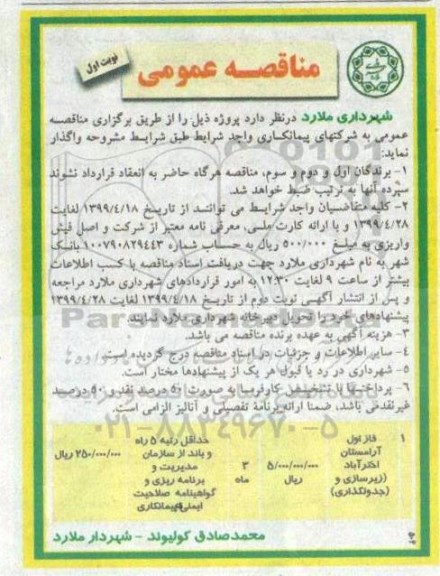 مناقصه عمومی
نوبت اول
شهرداری ملارد درنظر دارد پروژه ذیل را از طریق برگزاری مناقصه
عمومی به شرکتهای پیمانکاری واجد شرایط طبق شرایط مشروحه واگذار
نماید:
۱- برندگان اول و دوم و سوم، مناقصه هرگاه حاضر به انعقاد قرارداد نشوند
سپرده آنها به ترتیب ضبط خواهد شد.
۲- کلیه متقاضیان واجد شرایط می توانند از تاریخ ۱۳۹۹/۴/۱۸ لغایت
۱۳۹۹/۴/۲۸ و با ارائه کارت ملی، معرفی نامه معتبر از شرکت و اصل فیش
واریزی به مبلغ ۵۰۰/۰۰۰ ریال به حساب شماره ۱۰۰۷۹۰۸۲۹۴۴۳ بانک
شهر به نام شهرداری ملارد جهت دریافت اسناد مناقصه یا کسب اطلاعات
بیشتر از ساعت ۹ لغایت ۱۲:۳۰ به امور قراردادهای شهرداری ملارد مراجعه
و پس از انتشار آگهی نوبت دوم از تاریخ ۱۳۹۹/۴/۱۸ لغایت ۱۳۹۹/۴/۲۸
پیشنهادهای خود را تحویل دبیرخانه شهرداری ملارد نمایند.
۳- هزینه آگهی به عهده برنده مناقصه می باشد.
۴- سایر اطلاعات و جزئیات در اسناد مناقصه درج گردیده است.
۵- شهرداری در رد یا قبول هر یک از پیشنهادها مختار است.
۶- پرداختها با تشخیص کارفرما به صورت ۵۰ درصد نقد و ۵۰ درصد
غیرنقدمی باشد، ضمنا ارائه برنامه تفصیلی و آنالیز الزامی است.
۰۲۱-۸۸۳۴۹۶۷۰-۵
۱
فاز اول
آرامستان
اخترآباد
(زیرسازی و
جدولگذاری)
۵/۰۰۰/۰۰۰/۰۰۰
ریال
۳
ماه
حداقل رتبه ۵ راه
و باند از سازمان
مدیریت و
برنامه ریزی و
گواهینامه صلاحیت
ایمنی پیمانکاری
۲۵۰/۰۰۰/۰۰۰ ریال
محمدصادق کولیوند - شهردار ملارد